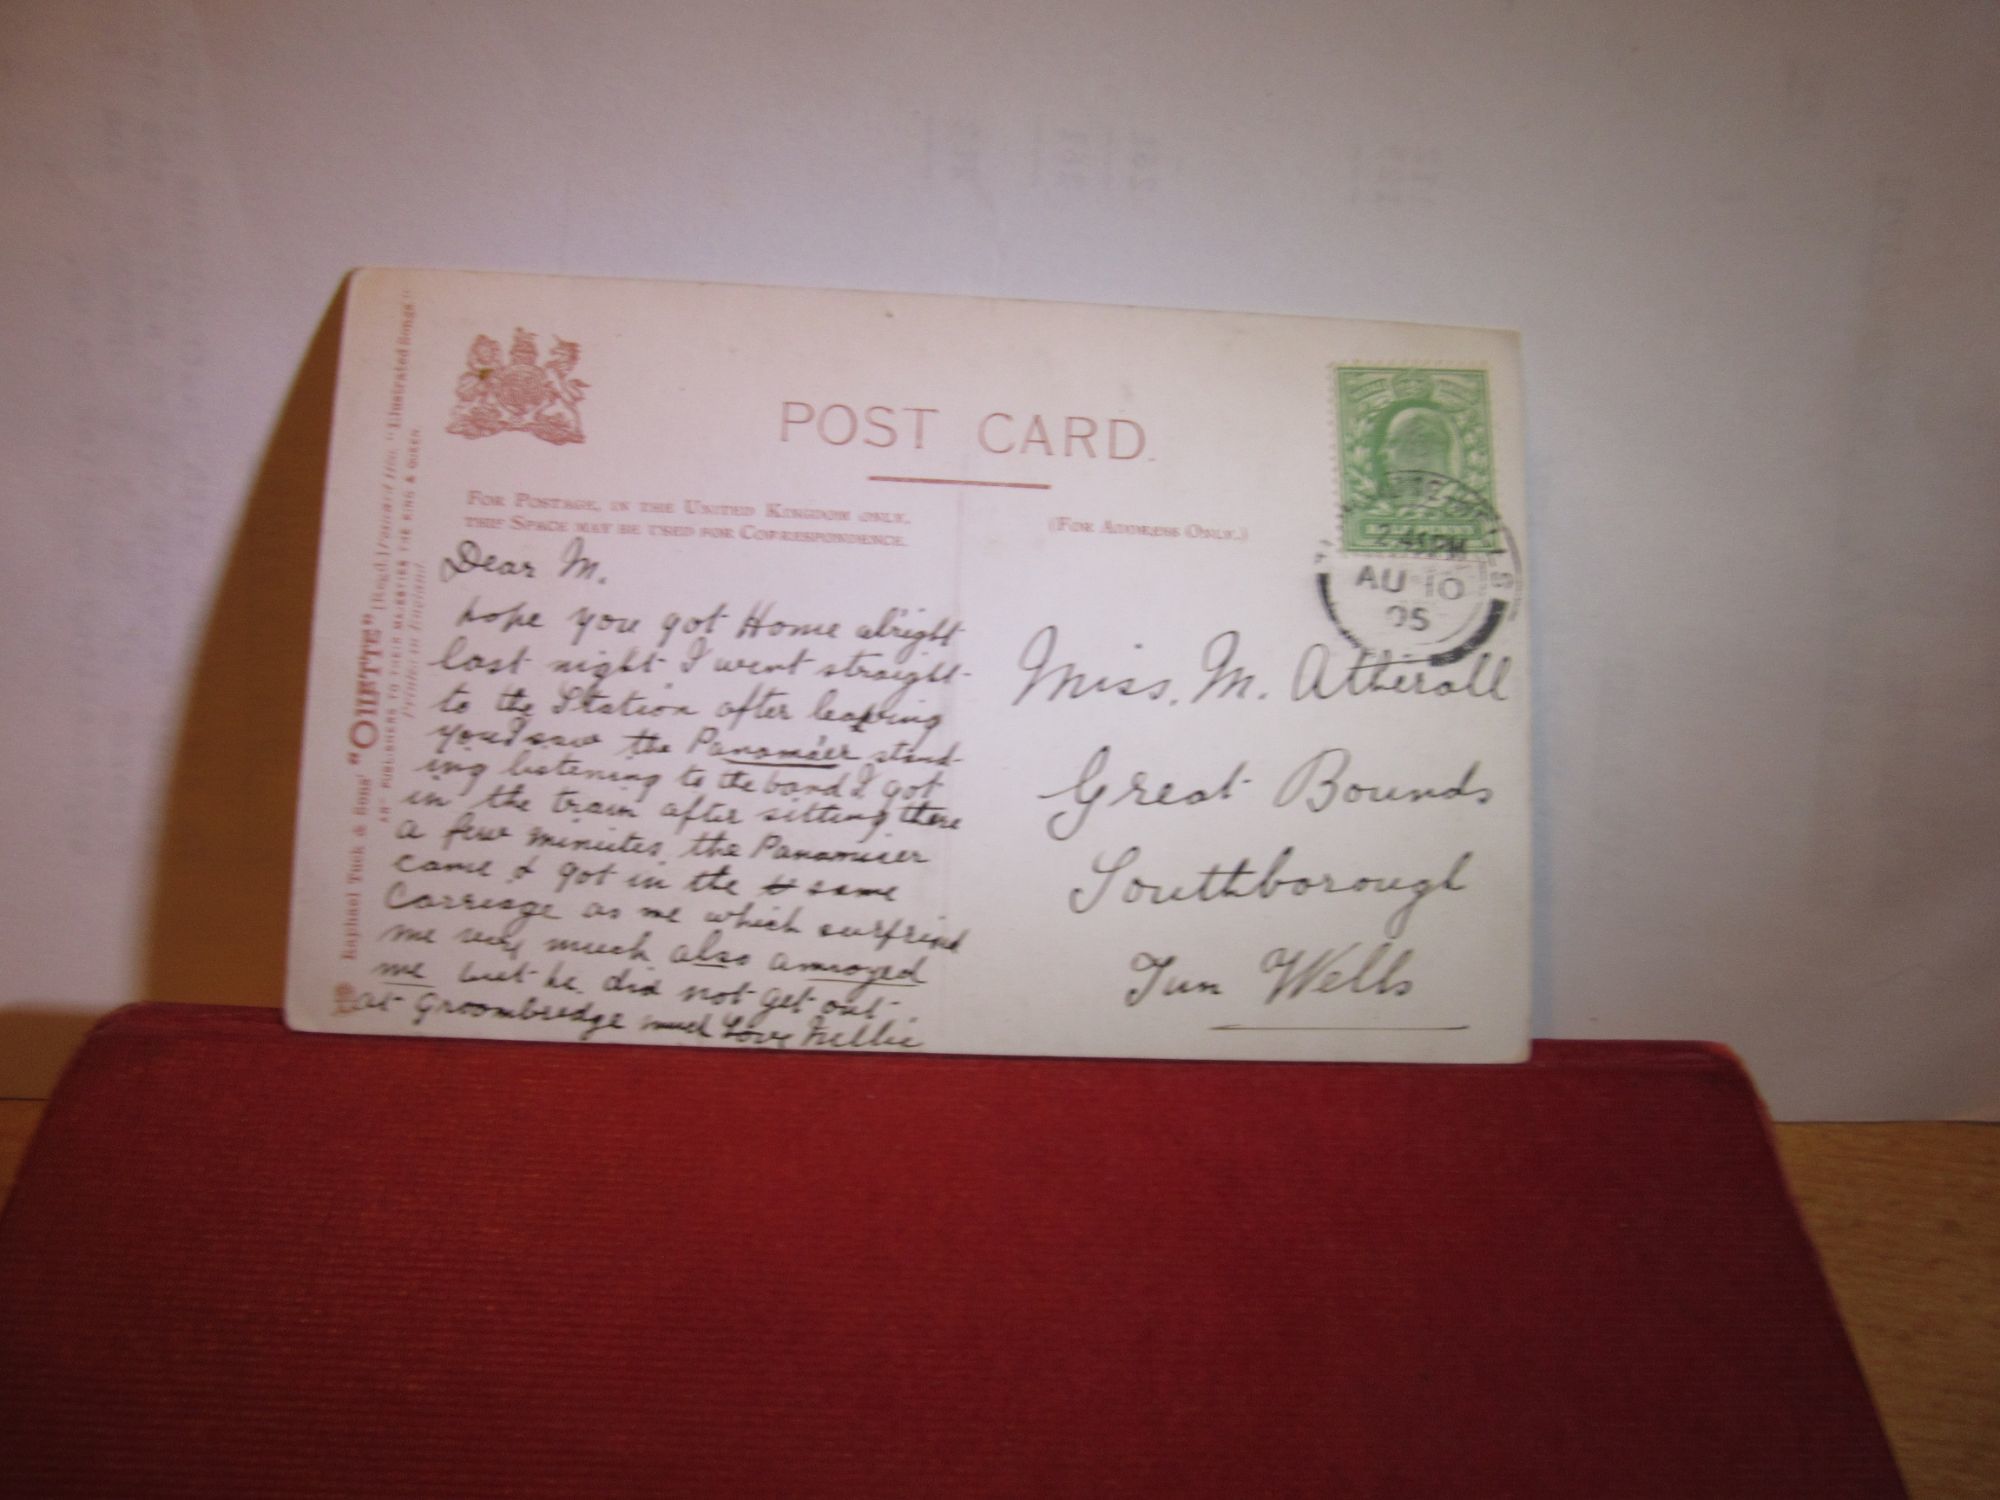 POST CARD.
FOR POSTAGE, IN THE UNITED KINGDOM ONLY,
THIS SPACE MAY BE USED FOR CORRESPONDENCE.
(FOR ADDRESS ONLY.)
Dear M.
hope you got Home alright
last night I went straight
to the Station after leaving
you I saw the Panamaier stand-
ing listening to the band I got
in the train after sitting there
a few minutes, the Panamier
came & got in the same
Carreage as me which surprised
me very much also annoyed
me but he did not get out
at Groombredge much Love Nellie
2.45 PM
AU 10
05
Miss. M. Atherall
Great Bounds
Southborough
Tun Wells
Raphael Tuck & Sons' "OILETTE" [Regd.] Postcard "Illustrated Songs"
ART PUBLISHERS TO THEIR MAJESTIES THE KING & QUEEN
Printed in England.